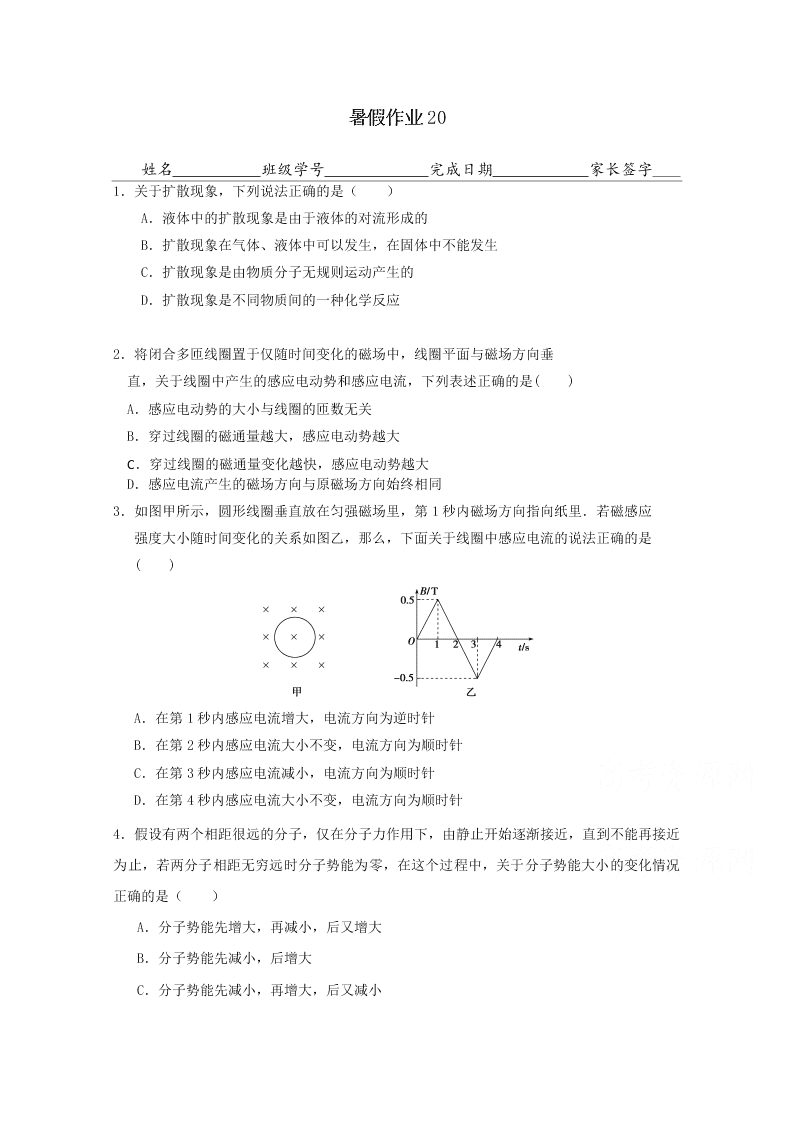 暑假作业 20
姓名 班级学号 完成日期 家长签字
1．关于扩散现象，下列说法正确的是（　　）
A．液体中的扩散现象是由于液体的对流形成的
B．扩散现象在气体、液体中可以发生，在固体中不能发生
C．扩散现象是由物质分子无规则运动产生的
D．扩散现象是不同物质间的一种化学反应
2．将闭合多匝线圈置于仅随时间变化的磁场中，线圈平面与磁场方向垂
直，关于线圈中产生的感应电动势和感应电流，下列表述正确的是(　　)
A．感应电动势的大小与线圈的匝数无关
B．穿过线圈的磁通量越大，感应电动势越大
C．穿过线圈的磁通量变化越快，感应电动势越大
D．感应电流产生的磁场方向与原磁场方向始终相同
3．如图甲所示，圆形线圈垂直放在匀强磁场里，第 1 秒内磁场方向指向纸里．若磁感应
强度大小随时间变化的关系如图乙，那么，下面关于线圈中感应电流的说法正确的是
(　　)
B/T
0.5
O 1 2 3 4 t/s
−0.5
甲 乙
A．在第 1 秒内感应电流增大，电流方向为逆时针
B．在第 2 秒内感应电流大小不变，电流方向为顺时针
C．在第 3 秒内感应电流减小，电流方向为顺时针
D．在第 4 秒内感应电流大小不变，电流方向为顺时针
4．假设有两个相距很远的分子，仅在分子力作用下，由静止开始逐渐接近，直到不能再接近
为止，若两分子相距无穷远时分子势能为零，在这个过程中，关于分子势能大小的变化情况
正确的是（　　）
A．分子势能先增大，再减小，后又增大
B．分子势能先减小，后增大
C．分子势能先减小，再增大，后又减小